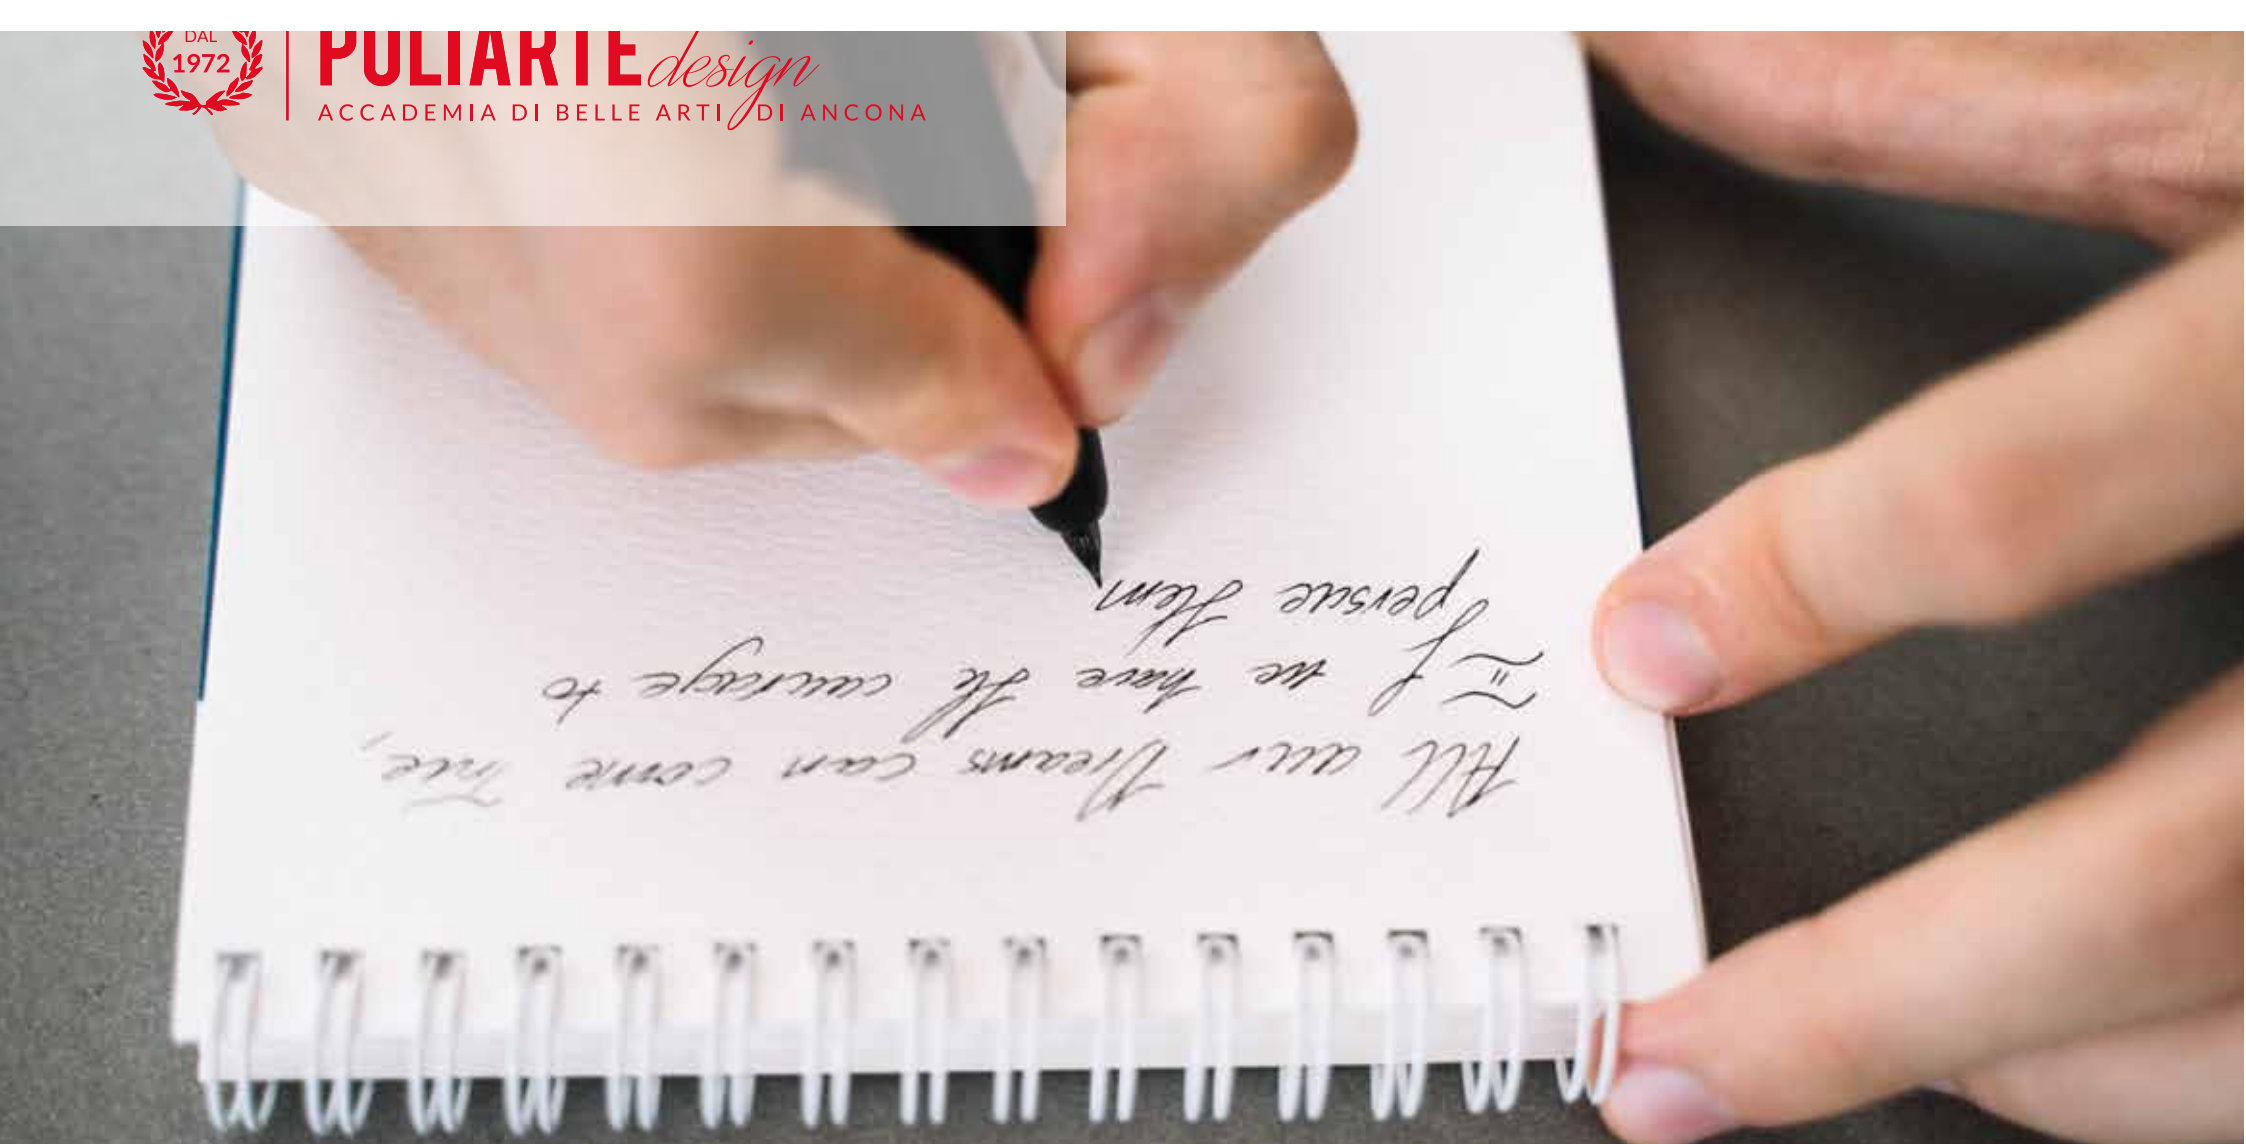 DAL
1972
PULIARTE design
ACCADEMIA DI BELLE ARTI DI ANCONA
All our Dreams can come True,
If we have the courage to
persue them